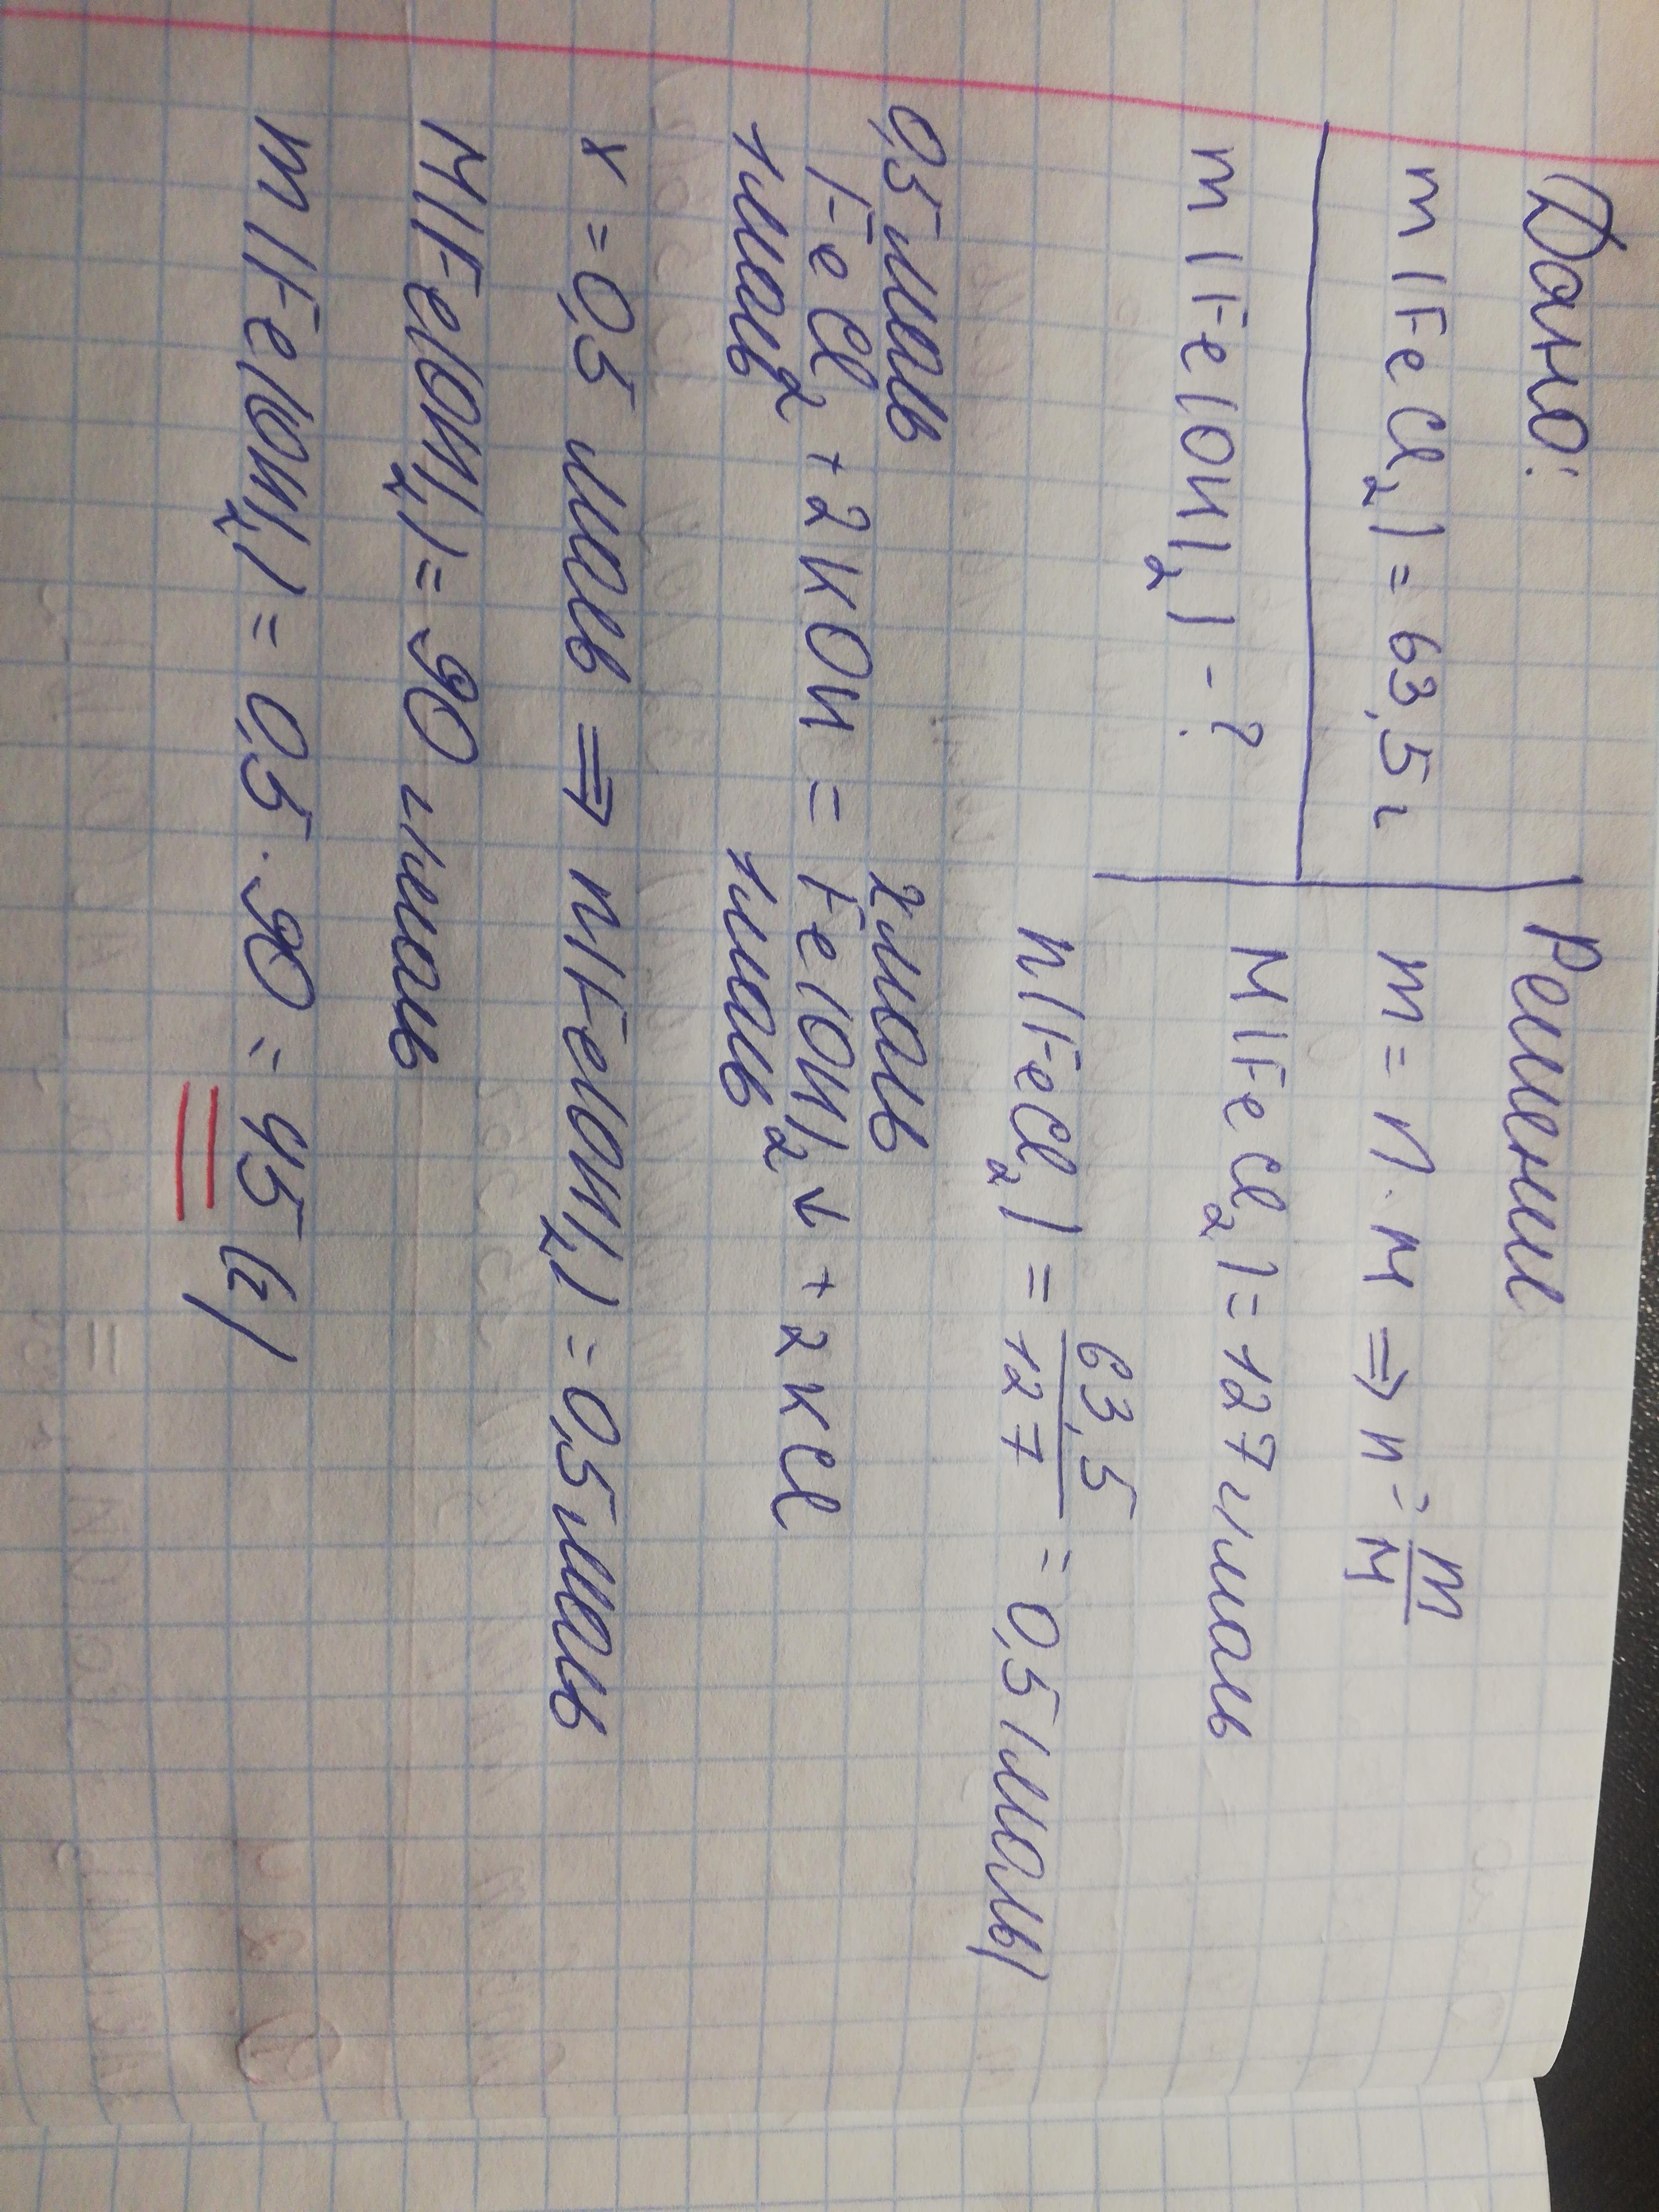 Дано:
m(FeCl₂) = 63,5 г
m(Fe(OH)₂) - ?
Решении
m = n · M ⇒ n = m/M
M(FeCl₂) = 127 г/моль
n(FeCl₂) = 63,5/127 = 0,5 (моль)
0,5 моль 2 моль
FeCl₂ + 2KOH = Fe(OH)₂ ↓ + 2KCl
1 моль 1 моль
x = 0,5 моль ⇒ n(Fe(OH)₂) = 0,5 моль
M(Fe(OH)₂) = 90 г/моль
m(Fe(OH)₂) = 0,5 · 90 = 45 (г)